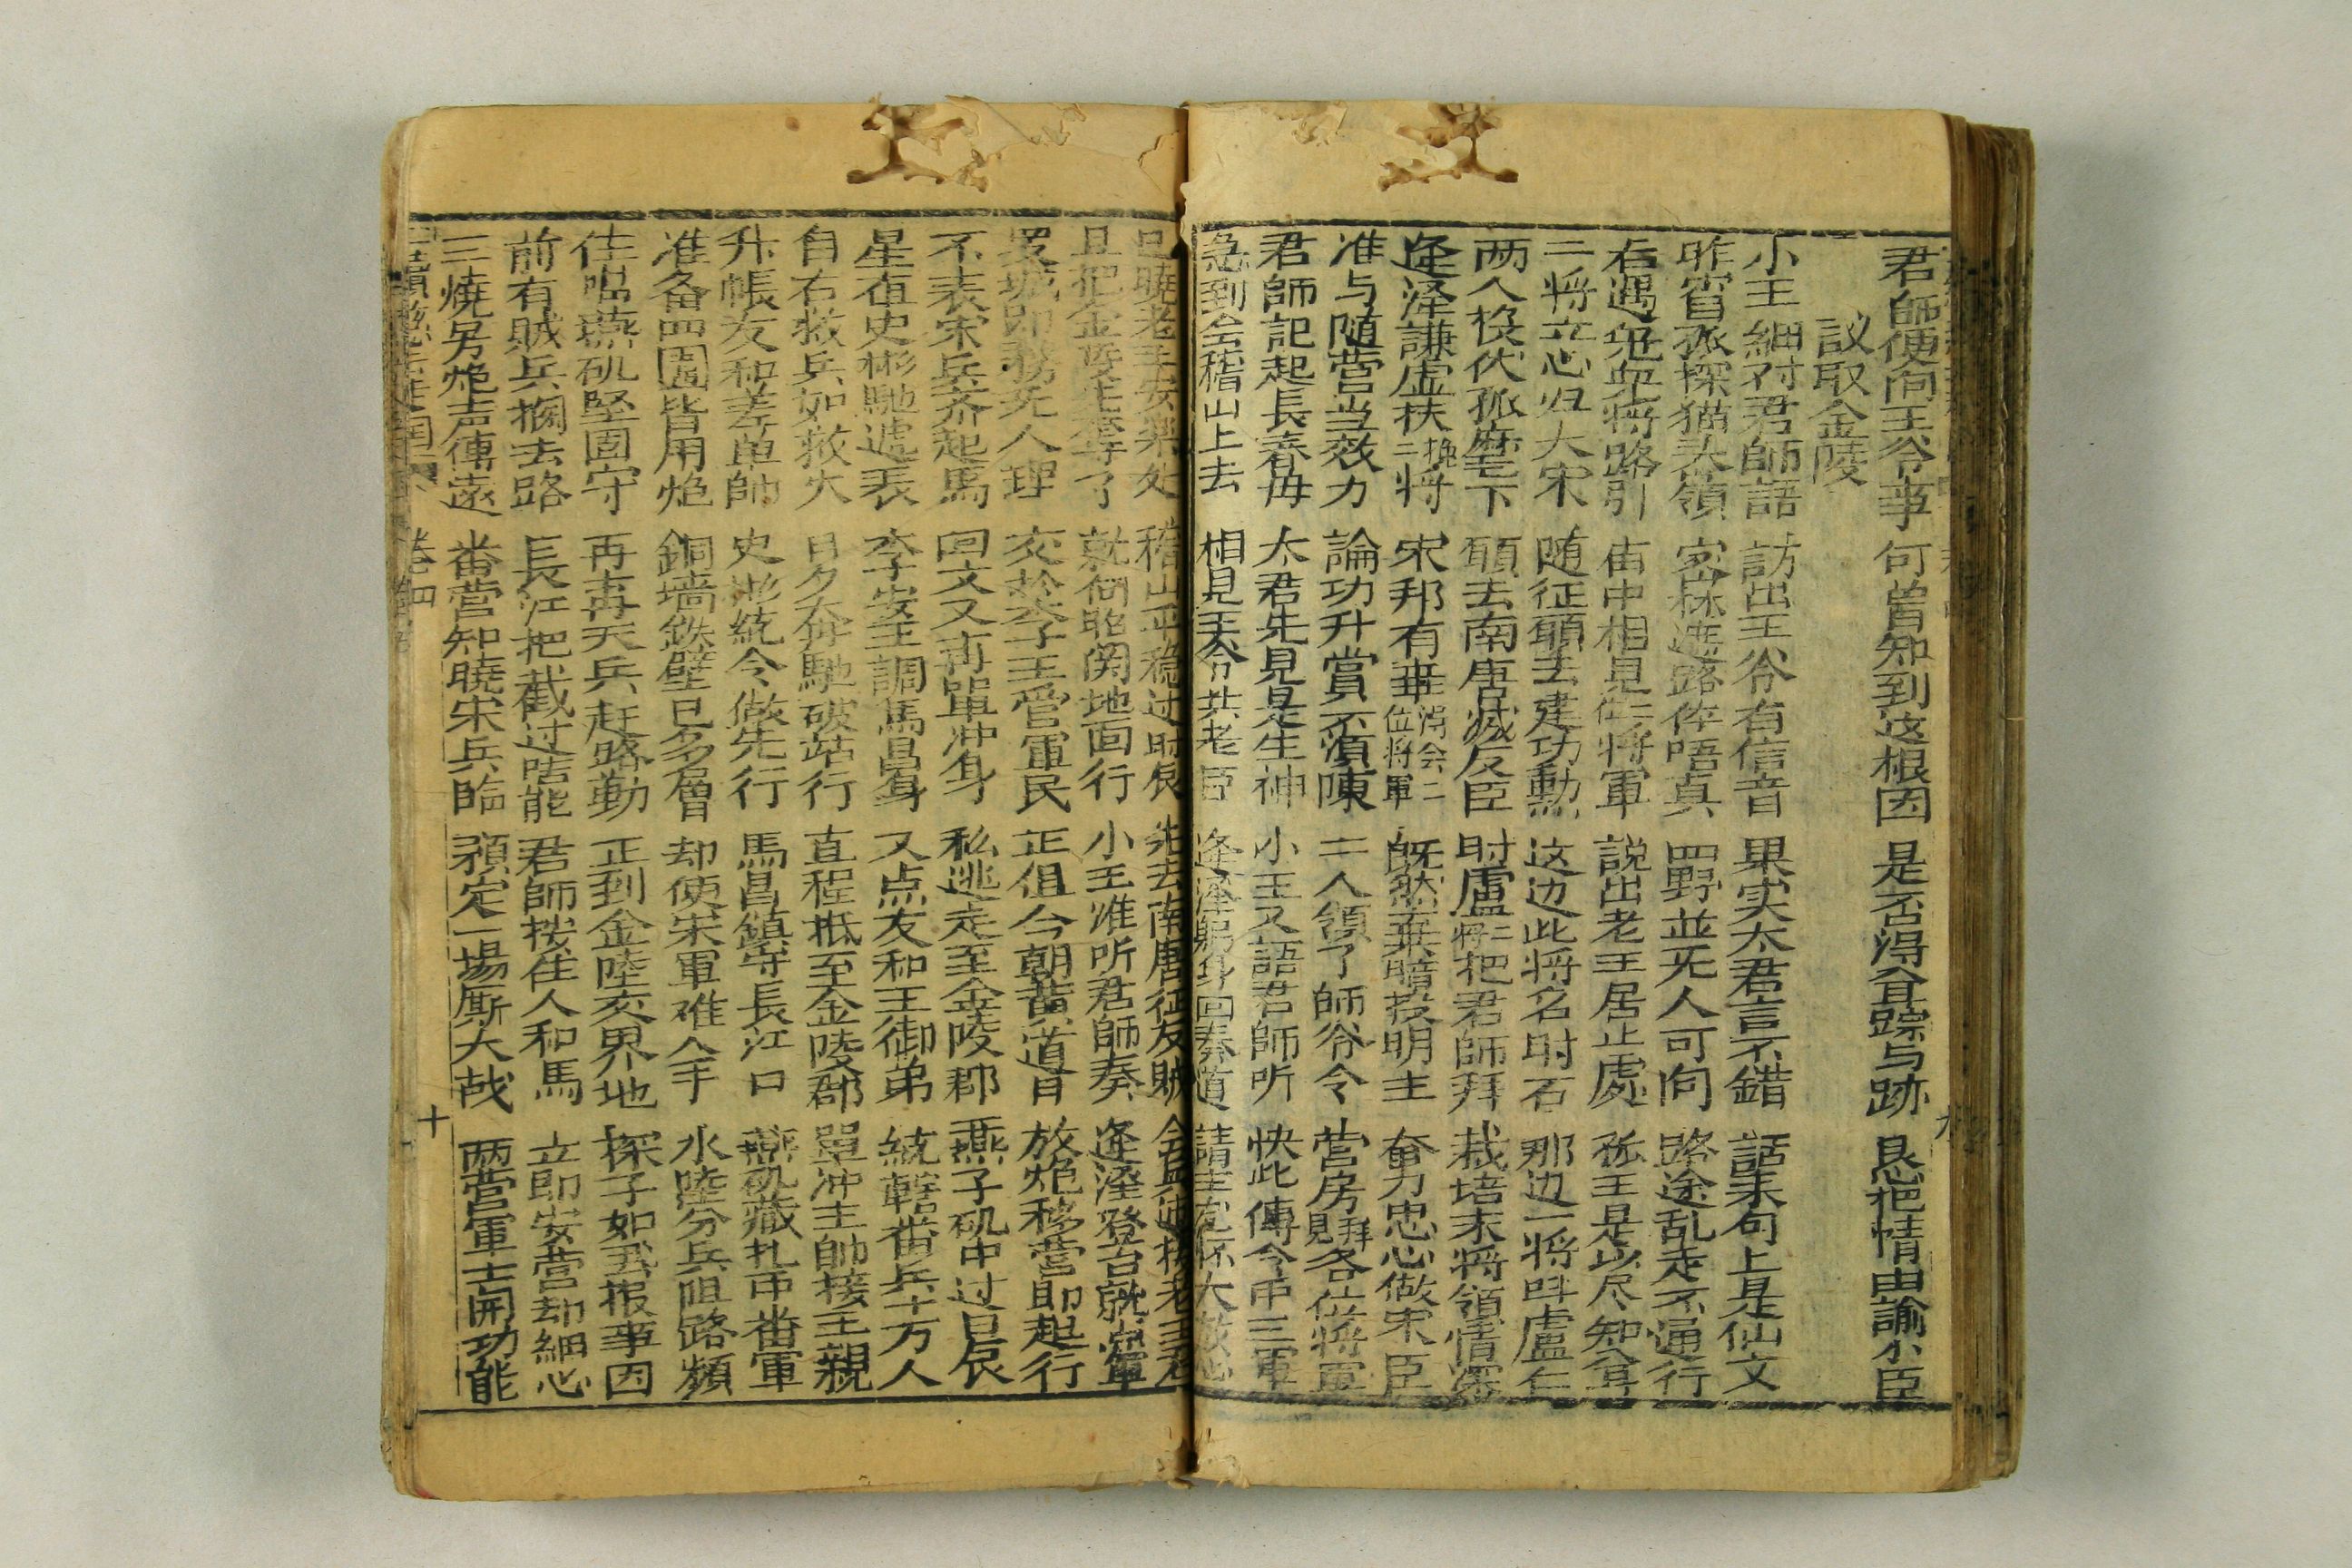 君師便问王爷事 何曾知到这根因 是否得音踪与跡 恳把情由諭小臣
議取金陵
小王細对君師語 訪出王爷有信音 果实太君言不錯 話末句上是仙文
昨宵孤探猫头嶺 家林迷路倅唔真 四野並无人可问 路途乱走不通行
右遇將路引 由中相見二位將軍 説出老王居止處 孤王是以尽知音
二將立心归大宋 随征願去建功勳 这边此將名时石 那边一將呌盧仁
两人投伏孤麾下 願去南唐滅反臣 时盧二將把君師拜 栽培末將領情深
逢澤謙虚扶挽二將 宋邦有幸得会二位將軍 既然棄暗投明主 奋力忠心做宋臣
准与随营当效力 論功升賞不須陳 二人領了師爷令 营房拜見各位將軍
君師記起長春毋 太君先見是生神 小王又語君師听 快此傳令吊三軍
急到会稽山上去 相見王爷共老臣 逢澤躬身回奏道 請主寬怀大放心
已曉老王安樂处 稽山平稳过时辰 先去南唐征反贼
且把金陵先奪了 就向昭関地面行 小王准听君師奏 逢澤登台就點軍
郡城即務无人理 交於太子王管軍民 正值今朝黄道日 放炮移营即起行
不表宋兵齐起馬 回文又再單冲身 私逃走至金陵郡 燕子矶中过日辰
星夜史彬馳遞表 李安王調馬昌身 又点友和王御弟 統轄番兵十万人
自古救兵如救火 日夕奔馳破站行 直程抵至金陵郡 單冲主帥接王親
升帳友和差單帥 史彬統令做先行 馬昌鎮守長江口 燕矶藏扎吊番軍
准备四圍皆用炮 銅墙鉄壁已多層 却使宋軍难入手 水陸分兵阻路頻
住唱燕矶堅固守 再表天兵赶路勤 正到金陸交界地 探子如飛报事因
前有賊兵攔去路 長江把截过唔能 君師按住人和馬 立即安营却細心
三燒另炮声傳遠 番营知曉宋兵臨 預定一場厮大战 两营軍士開功能
卷四 十